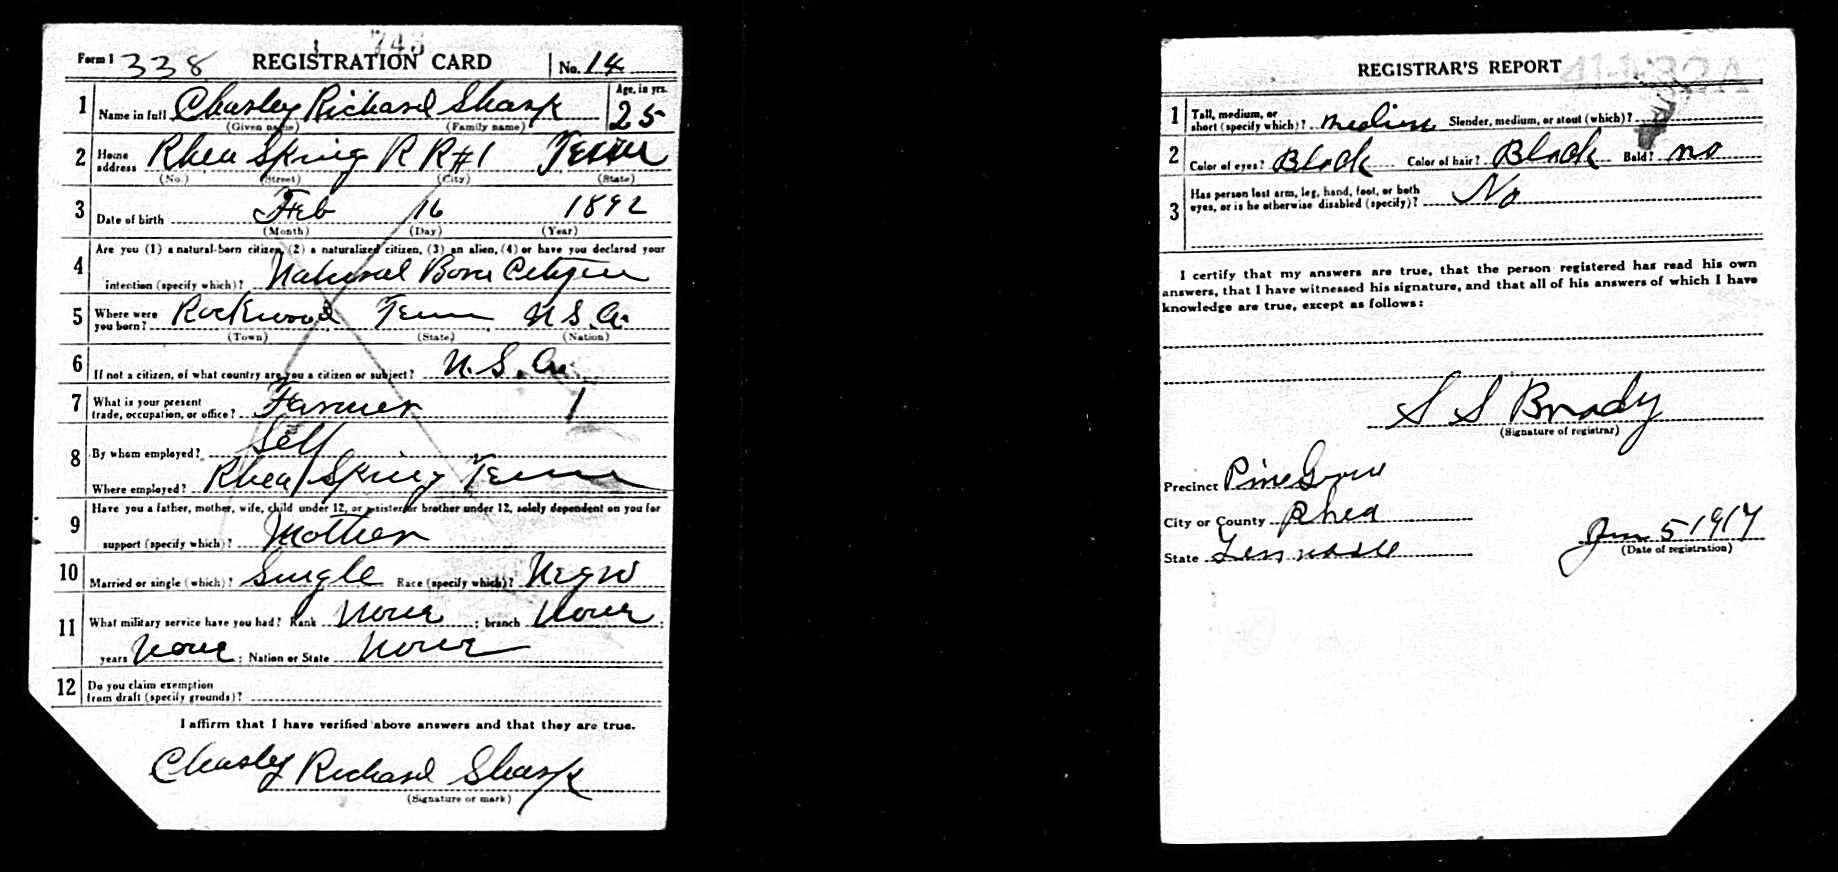 743
Form 1 338 REGISTRATION CARD No. 14
1 Name in full Charley Richard Sharp Age, in yrs. 25
(Given name) (Family name)
2 Home address Rhea Spring R R#1 Tenn
(No.) (Street) (City) (State)
3 Date of birth Feb 16 1892
(Month) (Day) (Year)
4 Are you (1) a natural-born citizen, (2) a naturalized citizen, (3) an alien, (4) or have you declared your
intention (specify which)? Natural Born Citizen
5 Where were you born? Rockwood Tenn U.S.A.
(Town) (State) (Nation)
6 If not a citizen, of what country are you a citizen or subject? U.S.A.
7 What is your present trade, occupation, or office? Farmer 1
8 By whom employed? Self
Where employed? Rhea Spring Tenn
9 Have you a father, mother, wife, child under 12, or a sister or brother under 12, solely dependent on you for
support (specify which)? Mother
10 Married or single (which)? Single Race (specify which)? Negro
11 What military service have you had? Rank None ; branch None ;
years None ; Nation or State None
12 Do you claim exemption from draft (specify grounds)?
I affirm that I have verified above answers and that they are true.
Charley Richard Sharp
(Signature or mark)
REGISTRAR'S REPORT
1 Tall, medium, or short (specify which)? medium Slender, medium, or stout (which)?
2 Color of eyes? Black Color of hair? Black Bald? no
3 Has person lost arm, leg, hand, foot, or both eyes, or is he otherwise disabled (specify)? No
I certify that my answers are true, that the person registered has read his own
answers, that I have witnessed his signature, and that all of his answers of which I have
knowledge are true, except as follows:
S S Brady
(Signature of registrar)
Precinct Pine Grove
City or County Rhea
State Tennessee
Jun 5 1917
(Date of registration)